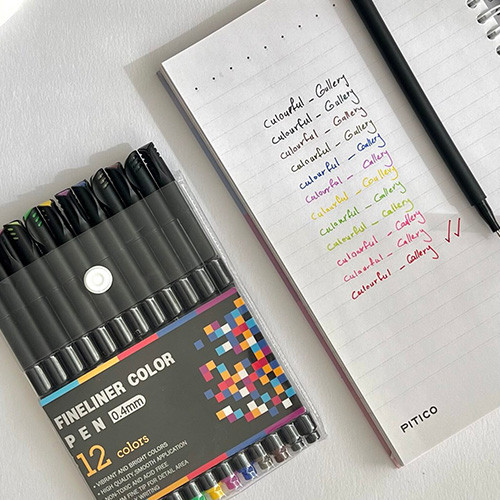 Colourful - Gallery
Colourful - Gallery
Colourful - Gallery
Colourful - Gallery
Colourful - Gallery
Colourful - Gallery
Colourful - Gallery
Colourful - Gallery
Colourful - Gallery
Colourful - Gallery
Colourful - Gallery
Colourful - Gallery
PITICO
FINELINER COLOR
PEN 0.4mm
12 colors
• VIBRANT AND BRIGHT COLORS
• HIGH QUALITY,SMOOTH APPLICATION
• NON-TOXIC AND ACID FREE
FINE TIP FOR DETAIL AREA
WRITING